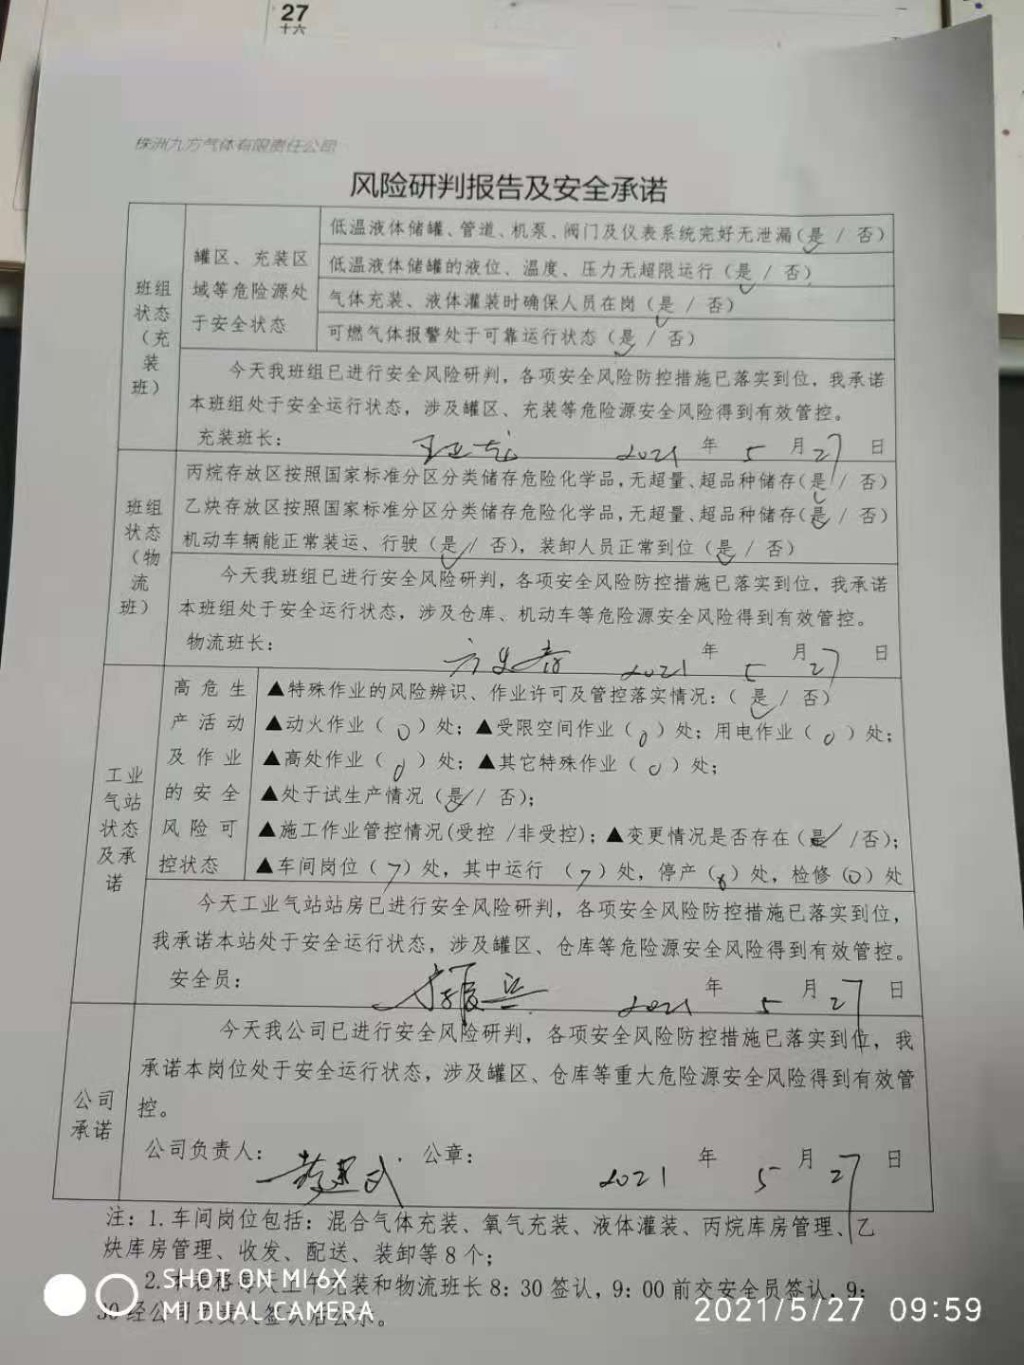 27
十六
株洲九方气体有限责任公司
风险研判报告及安全承诺
班组状态（充装班）
罐区、充装区域等危险源处于安全状态
低温液体储罐、管道、机泵、阀门及仪表系统完好无泄漏（是 / 否）
低温液体储罐的液位、温度、压力无超限运行（是 / 否）
气体充装、液体灌装时确保人员在岗（是 / 否）
可燃气体报警处于可靠运行状态（是 / 否）
今天我班组已进行安全风险研判，各项安全风险防控措施已落实到位，我承诺
本班组处于安全运行状态，涉及罐区、充装等危险源安全风险得到有效管控。
充装班长： 2021 年 5 月 27 日
班组状态（物流班）
丙烷存放区按照国家标准分区分类储存危险化学品，无超量、超品种储存（是 / 否）
乙炔存放区按照国家标准分区分类储存危险化学品，无超量、超品种储存（是 / 否）
机动车辆能正常装运、行驶（是 / 否），装卸人员正常到位（是 / 否）
今天我班组已进行安全风险研判，各项安全风险防控措施已落实到位，我承诺
本班组处于安全运行状态，涉及仓库、机动车等危险源安全风险得到有效管控。
物流班长： 2021 年 5 月 27 日
工业气站状态及承诺
高危生产活动及作业的安全风险可控状态
▲特殊作业的风险辨识、作业许可及管控落实情况：（ 是 / 否）
▲动火作业（ 0 ）处；▲受限空间作业（ 0 ）处；用电作业（ 0 ）处；
▲高处作业（ 0 ）处；▲其它特殊作业（ 0 ）处；
▲处于试生产情况（是 / 否）；
▲施工作业管控情况(受控 /非受控)；▲变更情况是否存在（是 /否）；
▲车间岗位（ 7 ）处，其中运行 （ 7 ）处，停产（ ）处，检修（0）处
今天工业气站站房已进行安全风险研判，各项安全风险防控措施已落实到位，
我承诺本站处于安全运行状态，涉及罐区、仓库等危险源安全风险得到有效管控。
安全员： 2021 年 5 月 27 日
公司承诺
今天我公司已进行安全风险研判，各项安全风险防控措施已落实到位，我
承诺本岗位处于安全运行状态，涉及罐区、仓库等重大危险源安全风险得到有效管
控。
公司负责人： 公章： 2021 年 5 月 27 日
注：1.车间岗位包括：混合气体充装、氧气充装、液体灌装、丙烷库房管理、乙
炔库房管理、收发、配送、装卸等 8 个；
2.本表格每天上午充装和物流班长 8：30 签认，9：00 前交安全员签认，9：
30 经公司负责人签认后公示。
SHOT ON MI 6X
MI DUAL CAMERA
2021/5/27 09:59